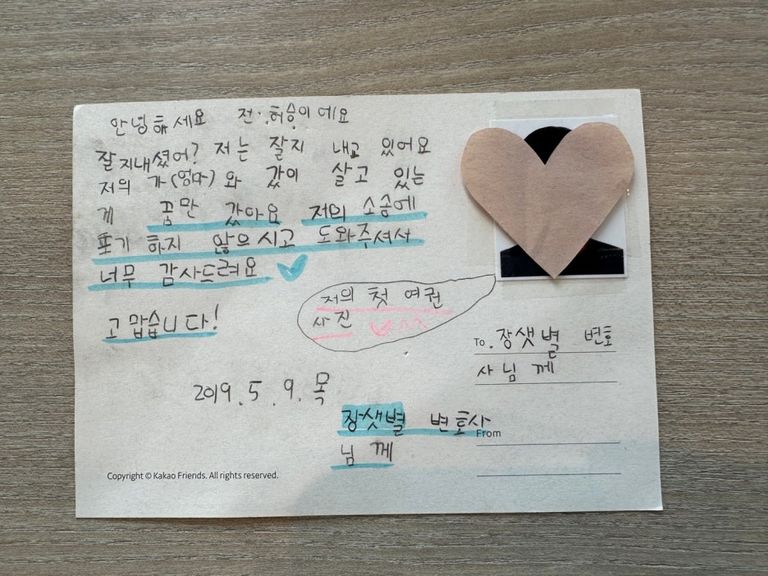 안녕하세요 전.허승이에요
잘지내셨어? 저는 잘지 내고 있어요
저의 가(엄마)와 갔이 살고 있는
게 꿈만 갔아요 저의 소송에
포기 하지 않으시고 도와주셔서
너무 감사드려요
고맙습니다!
저의 첫 여권
사진
To. 장샛별 변호
사님께
2019. 5. 9. 목
장샛별 변호사
님께
From
Copyright © Kakao Friends. All rights reserved.